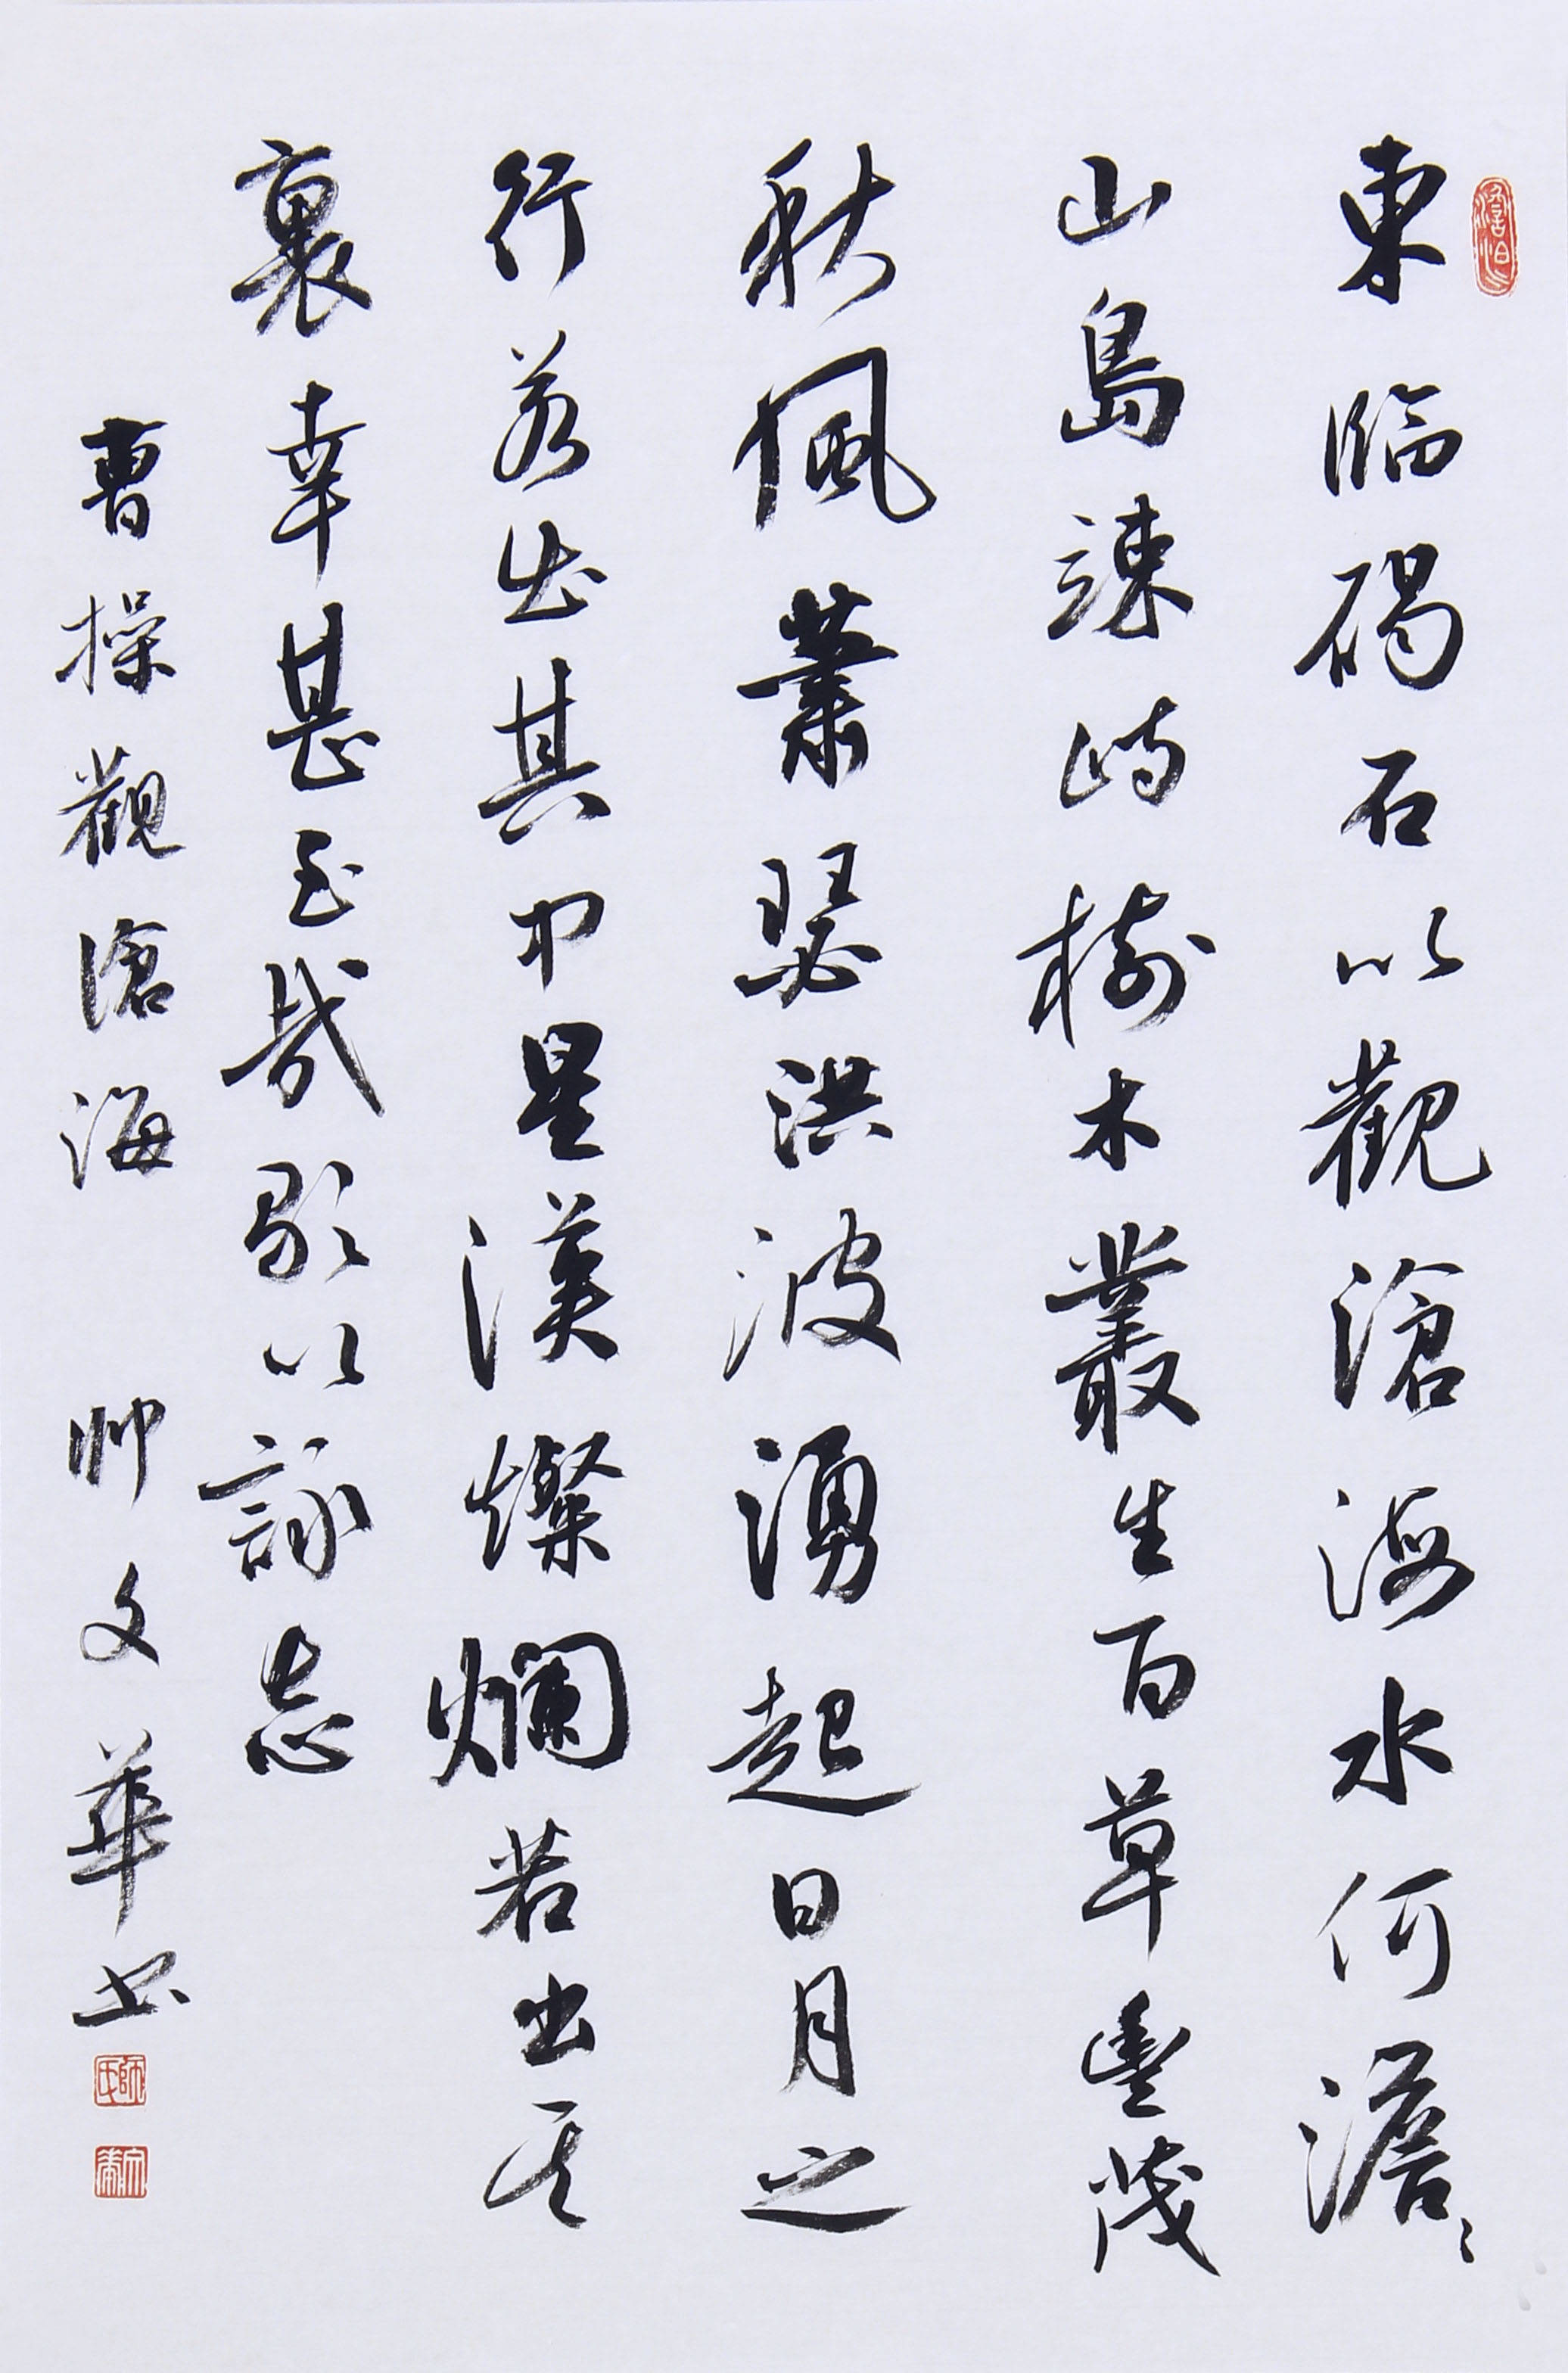 東臨碣石以觀滄海水何澹〻
山島竦峙樹木叢生百草豐茂
秋風蕭瑟洪波湧起日月之
行若出其中星漢燦爛若出其
裏幸甚至哉歌以詠志
曹操觀滄海 帅文華书